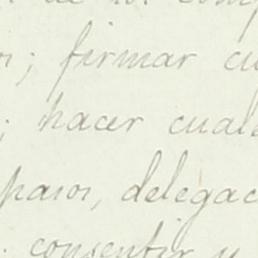 de
; firmar cu
; hacer cual
pasos, delegac
consentir y